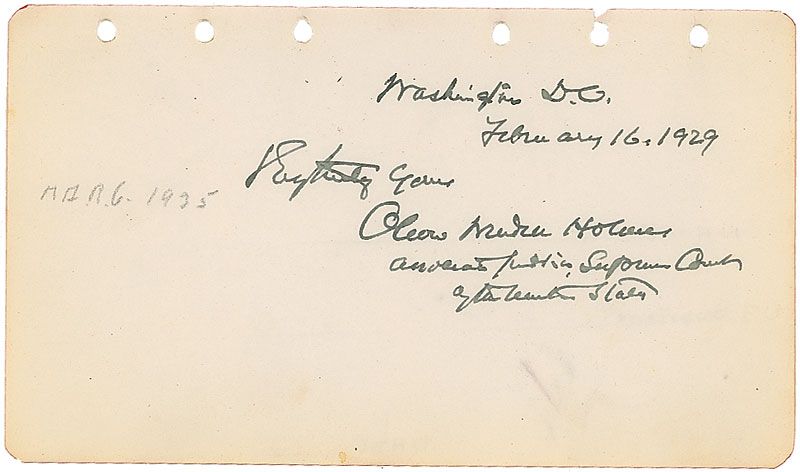 Washington D.C.
February 16. 1929
Very truly yours
MAR. 6. 1935
Oliver Wendell Holmes
Associate Justice, Supreme Court
of the United States